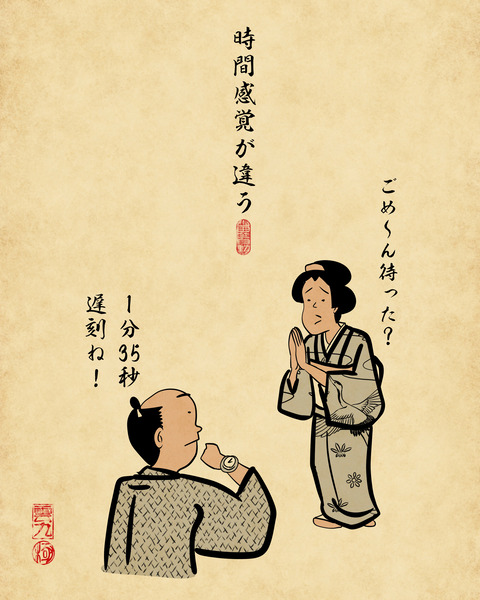 時間感覚が違う
ごめ〜ん待った？
1分35秒
遅刻ね！